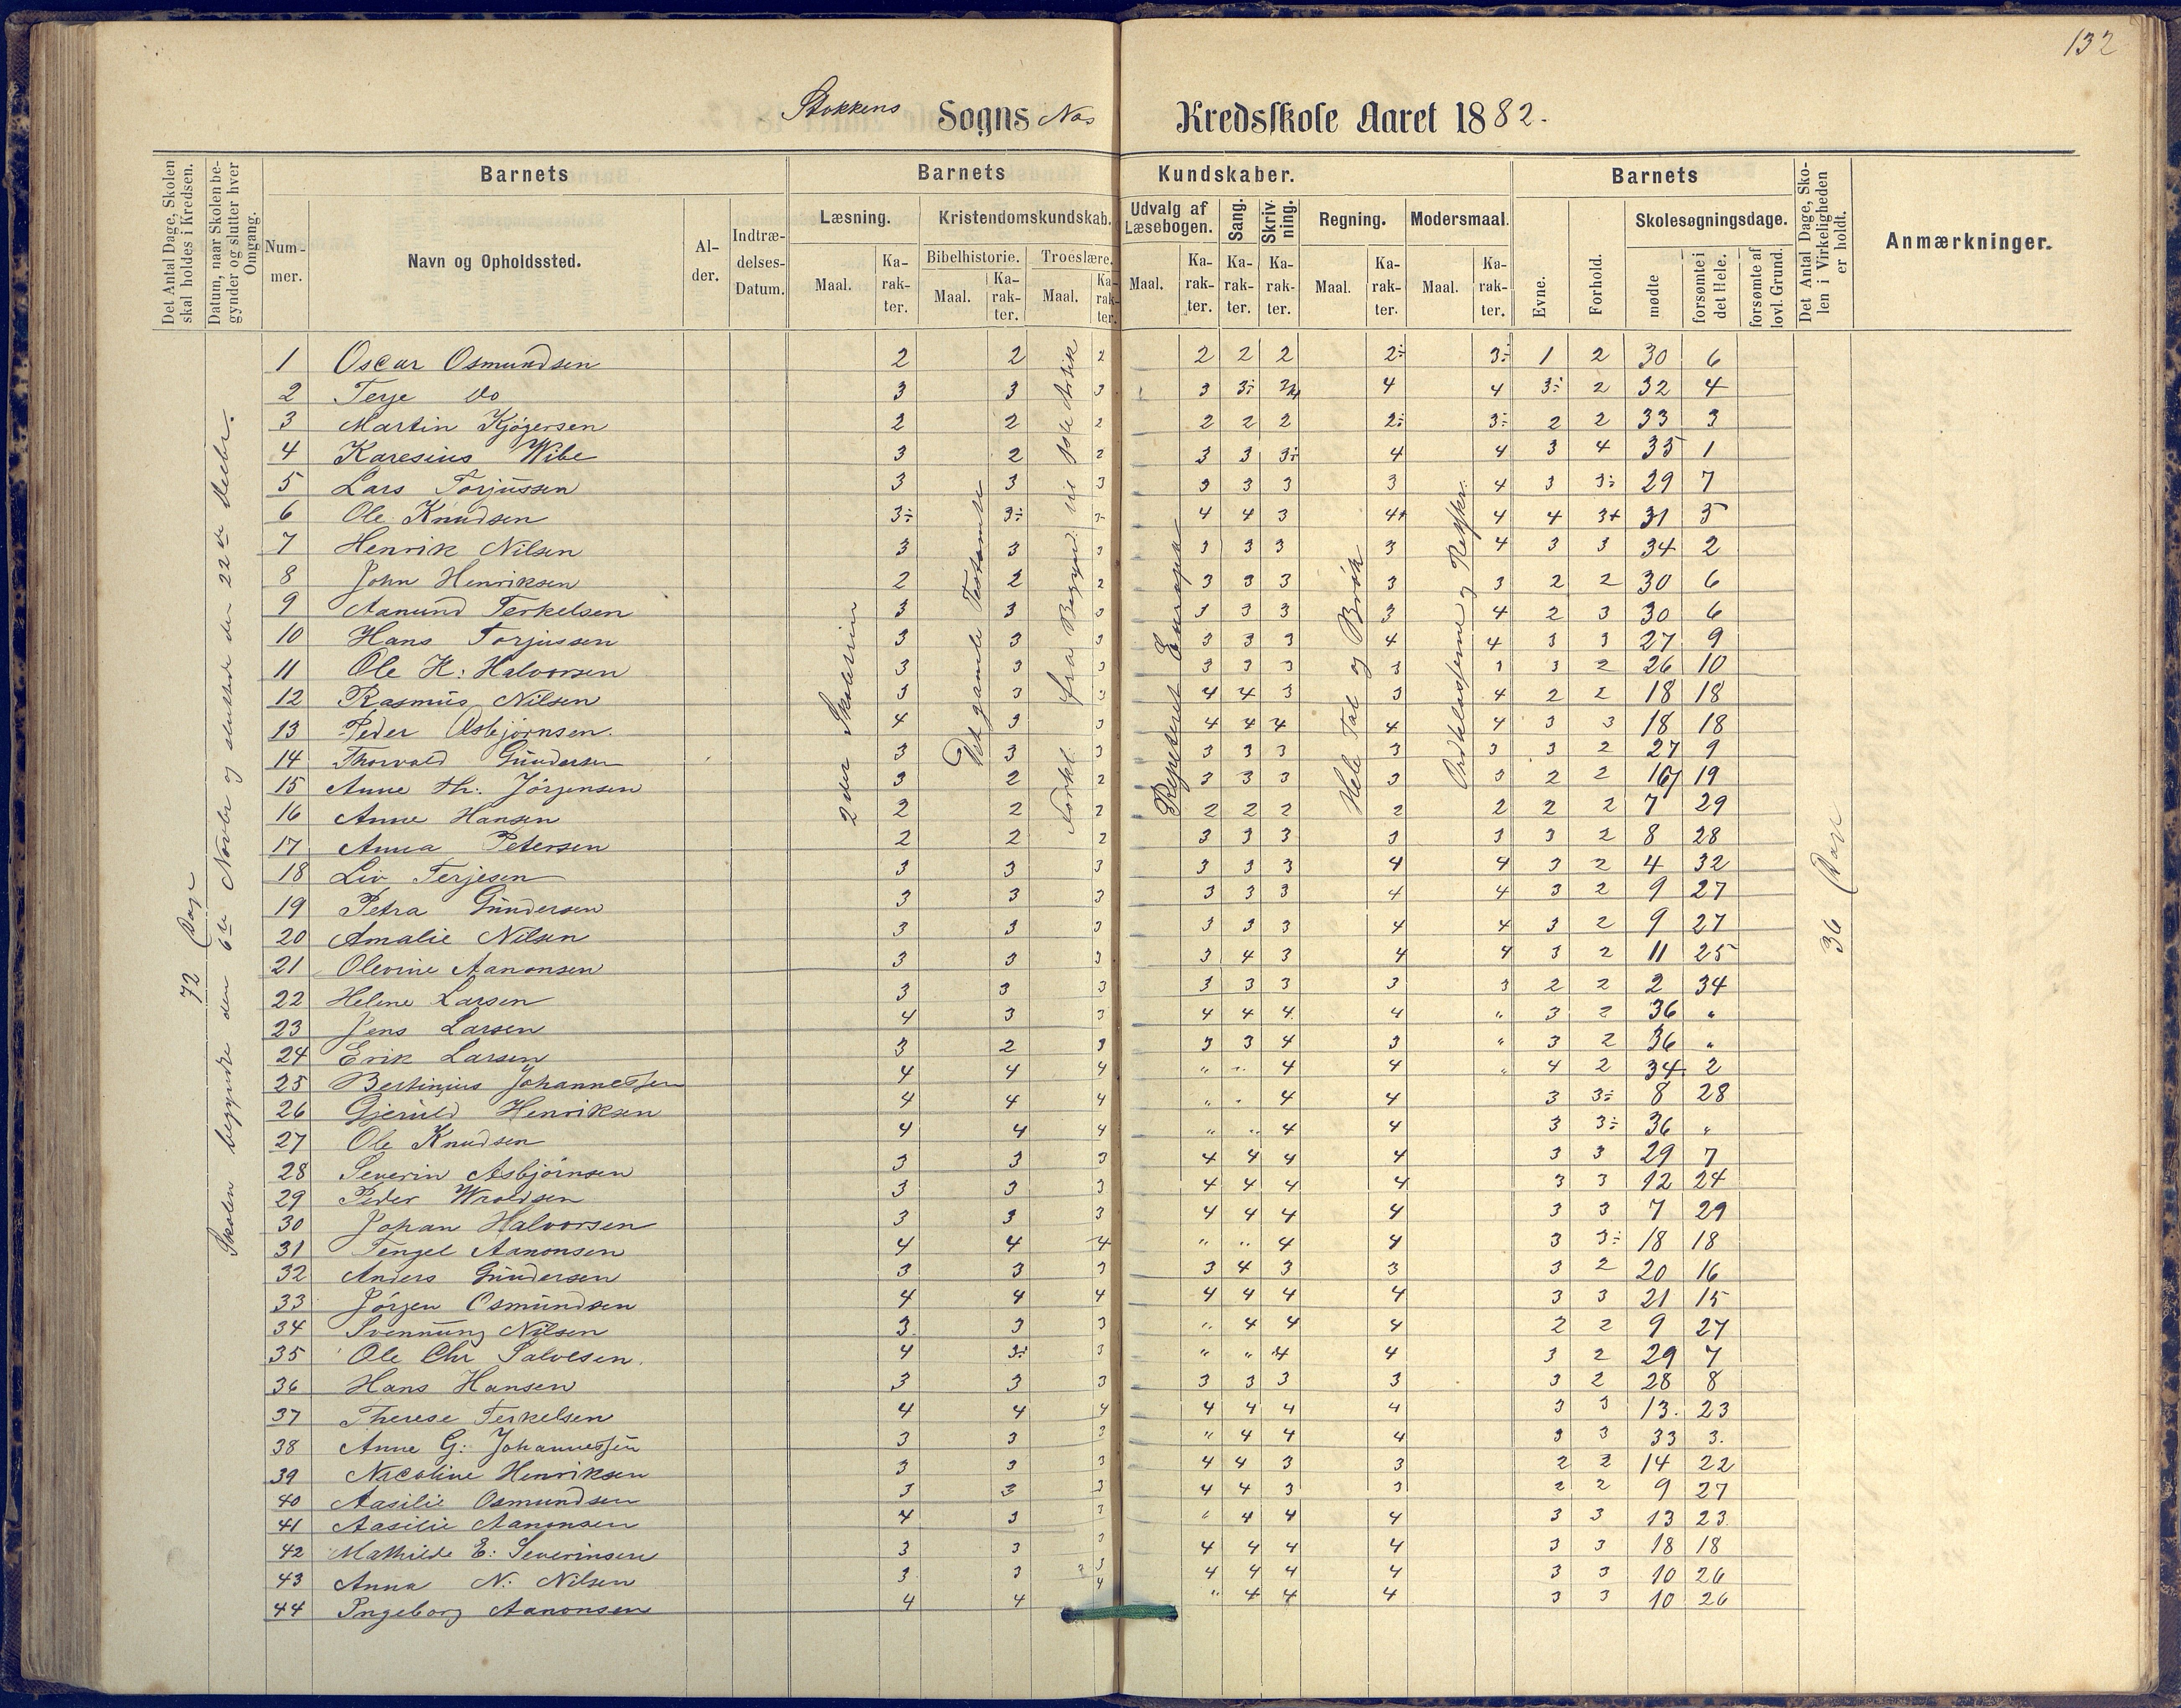 132
Stokkens Sogns Nos Kredsskole Aaret 1882.
Det Antal Dage, Skolen skal holdes i Kredsen.
Datum, naar Skolen begynder og slutter hver Omgang.
Barnets
Nummer.
Navn og Opholdssted.
Alder.
Indtrædelses-Datum.
Barnets Kundskaber.
Læsning.
Maal.
Karakter.
Kristendomskundskab.
Bibelhistorie.
Maal.
Karakter.
Troeslære.
Maal.
Karakter.
Udvalg af Læsebogen.
Maal.
Karakter.
Sang.
Karakter.
Skrivning.
Karakter.
Regning.
Maal.
Karakter.
Modersmaal.
Maal.
Karakter.
Barnets
Evne.
Forhold.
Skolesøgningsdage.
mødte
forsømte i det Hele.
forsømte af lovl. Grund.
Det Antal Dage, Skolen i Virkeligheden er holdt.
Anmærkninger.
72 Dage
Skolen begyndte den 6te Novbr og sluttede den 22de Decbr.
2den Skoletrin
Det gamle Testamente
Forkl. fra Begynd. til 3die Artikk
Repeteret Europa
Hele Tal og Brøk
Ordklasserne og Retskr.
36 Dage
1 Oscar Osmundsen 2 2 2 2 2 2 2÷ 3÷ 1 2 30 6
2 Terje Do 3 3 3 3 3÷ 3/4 4 4 3÷ 2 32 4
3 Martin Kjøgersen 2 2 2 2 2 2 2÷ 3÷ 2 2 33 3
4 Karesius Wibe 3 2 2 3 3 3÷ 4 4 3 4 35 1
5 Lars Torjussen 3 3 3 3 3 3 3 4 3 3÷ 29 7
6 Ole Knudsen 3÷ 3÷ 3÷ 4 4 3 4+ 4 4 3+ 31 5
7 Henrik Nilsen 3 3 3 3 3 3 3 4 3 3 34 2
8 John Henriksen 2 2 2 3 3 3 3 3 2 2 30 6
9 Aanund Terkelsen 3 3 3 3 3 3 3 4 2 3 30 6
10 Hans Torjussen 3 3 3 3 3 3 4 4 3 3 27 9
11 Ole H: Halvorsen 3 3 3 3 3 3 3 3 3 2 26 10
12 Rasmus Nilsen 3 3 3 4 4 3 3 4 2 2 18 18
13 Peder Asbjørnsen. 4 3 3 4 4 4 4 4 3 3 18 18
14 Thorvald Gundersen 3 3 3 3 3 3 3 3 3 2 27 9
15 Anne Th: Jørgensen 3 2 2 3 3 3 3 3 2 2 17 19
16 Anne Hansen 2 2 2 2 2 2 2 2 2 2 7 29
17 Anna Petersen 2 2 2 3 3 3 3 3 3 2 8 28
18 Liv Terjesen 3 3 3 3 3 3 4 4 3 2 4 32
19 Petra Gundersen 3 3 3 3 3 3 4 4 3 2 9 27
20 Amalie Nilsen 3 3 3 3 3 3 4 4 3 2 9 27
21 Olevine Aanonsen 3 3 3 3 4 3 4 4 3 2 11 25
22 Helene Larsen 3 3 3 3 3 3 3 3 2 2 2 34
23 Jens Larsen 4 3 3 4 4 4 4 " 3 2 36 "
24 Erik Larsen 3 2 3 3 3 4 3 " 3 2 36 "
25 Bertinius Johannessen 4 4 4 " " 4 4 " 4 2 34 2
26 Gjeruld Henriksen 4 4 4 " " 4 4 3 3÷ 8 28
27 Ole Knudsen 4 4 4 " " 4 4 3 3÷ 36 "
28 Severin Asbjørnsen 3 3 3 4 4 4 4 3 3 29 7
29 Peder Wroldsen 3 3 3 4 4 4 4 3 3 12 24
30 Johan Halvorsen 3 3 3 4 4 4 4 3 3 7 29
31 Tengel Aanonsen 4 4 4 " " 4 4 3 3÷ 18 18
32 Anders Gundersen 3 3 3 3 4 3 3 3 2 20 16
33 Jørgen Osmundsen 4 4 4 4 4 4 4 3 3 21 15
34 Svennung Nilsen 3 3 3 " 4 4 4 2 2 9 27
35 Ole Chr Salvesen. 4 3÷ 3 " " 4 4 3 2 29 7
36 Hans Hansen 3 3 3 3 3 3 3 3 2 28 8
37 Therese Terkelsen 4 4 4 4 4 4 4 3 3 13. 23
38 Anne G: Johannessen 3 3 3 " 4 4 4 3 3 33 3.
39 Nicoline Henriksen 3 3 3 4 4 3 3 2 2 14 22
40 Aasilie Osmundsen 3 3 3 4 4 3 3 2 2 9 27
41 Aasilie Aanonsen 4 3 3 " 4 4 4 3 3 13 23.
42 Mathilde E: Severinsen 3 3 3 4 4 4 4 3 3 18 18
43 Anna N: Nilsen 3 3 3 4 4 4 4 3 3 10 26
44 Ingeborg Aanonsen 4 4 4 " 4 4 4 3 3 10 26